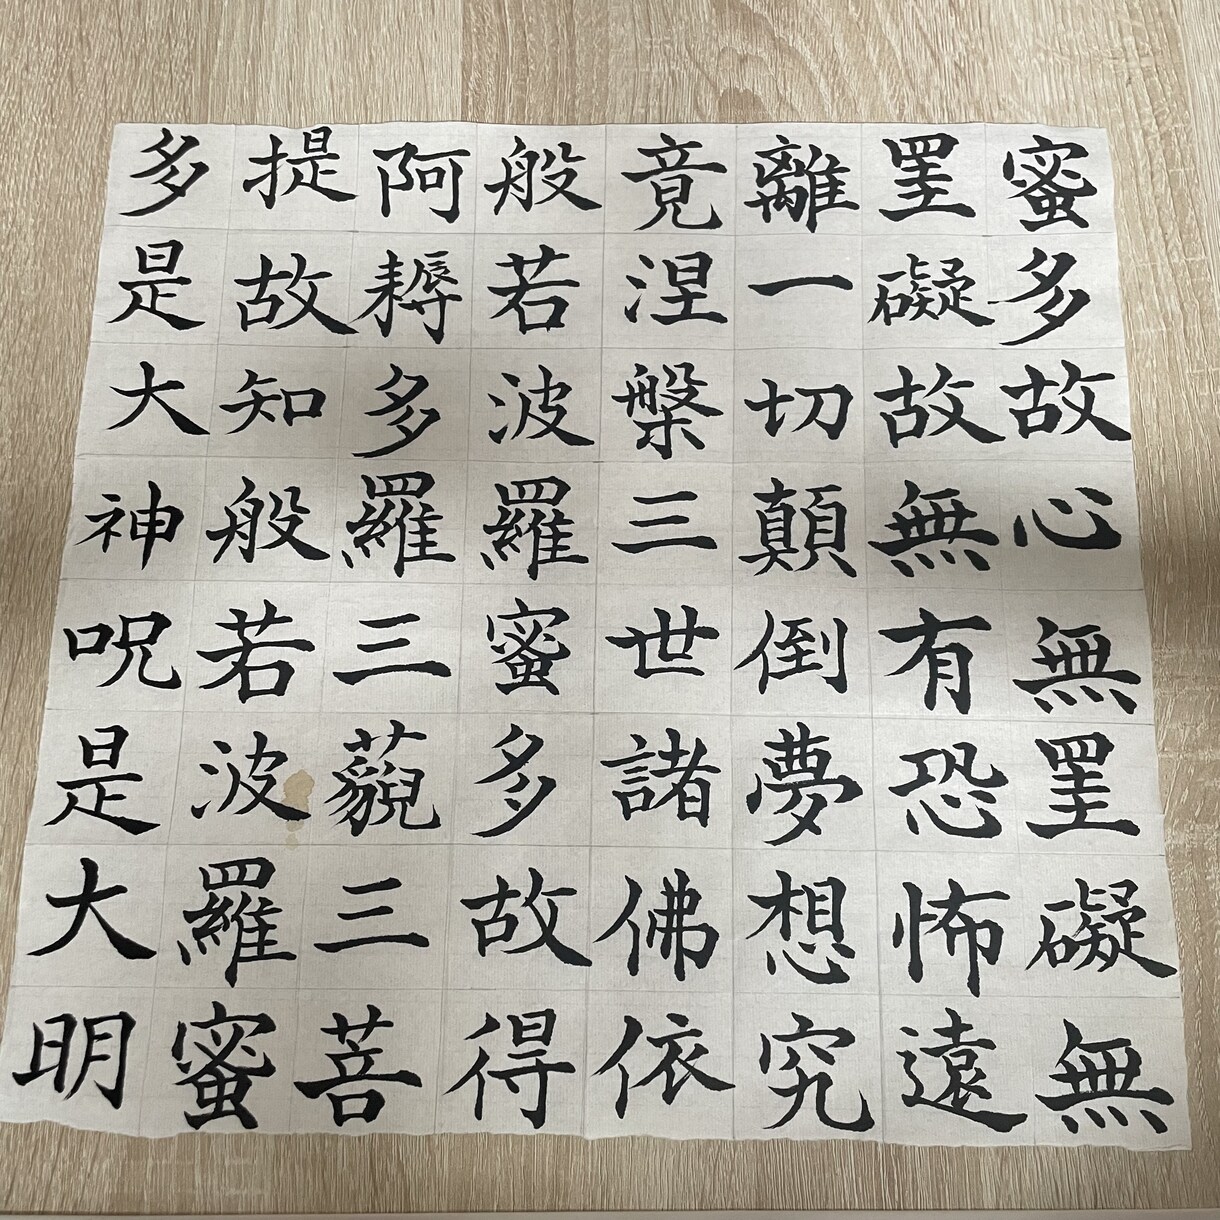 蜜多故心無罣礙無
罣礙故無有恐怖遠
離一切顛倒夢想究
竟涅槃三世諸佛依
般若波羅蜜多故得
阿耨多羅三藐三菩
提故知般若波羅蜜
多是大神呪是大明